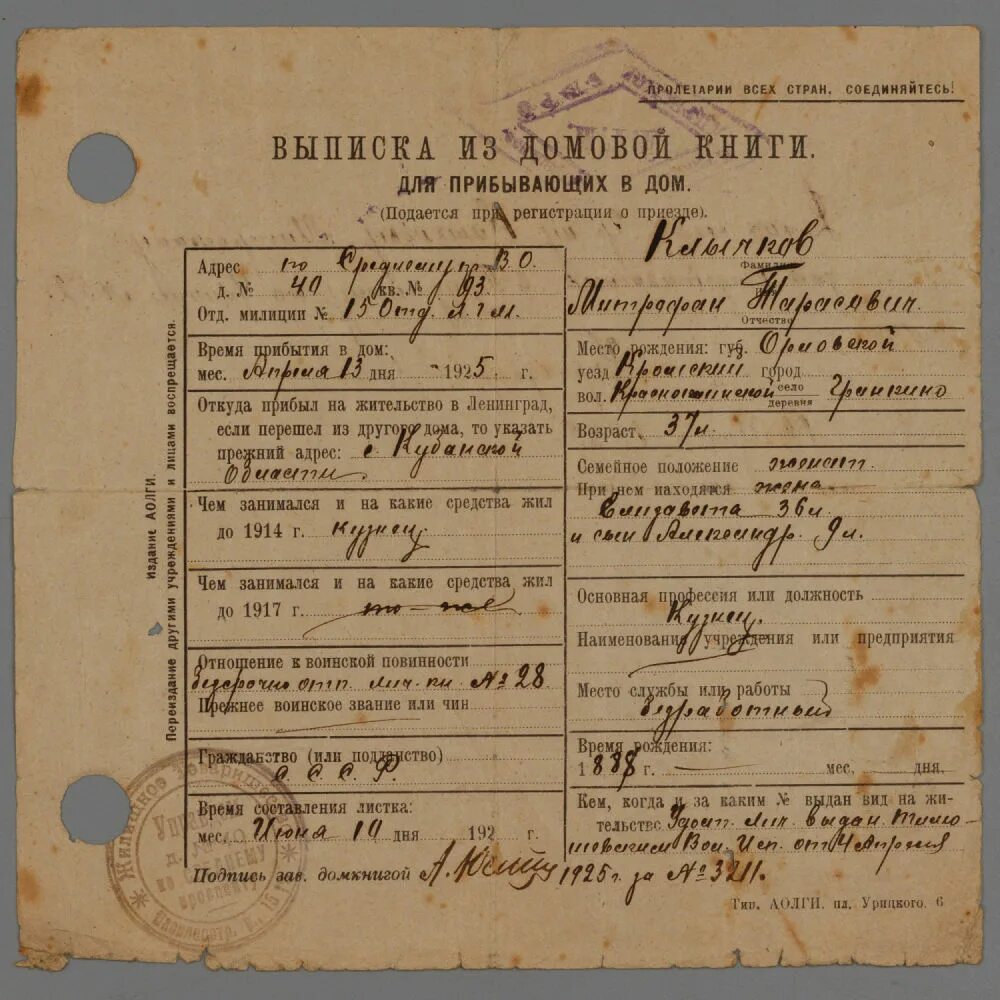 ПРОЛЕТАРИИ ВСЕХ СТРАН, СОЕДИНЯЙТЕСЬ!
ВЫПИСКА ИЗ ДОМОВОЙ КНИГИ.
ДЛЯ ПРИБЫВАЮЩИХ В ДОМ.
(Подается при регистрации о приезде).
Адрес по Среднему п. В.О.
д. № 40 кв. № 93
Отд. милиции № 15 Отд. Л.Г.М.
Время прибытия в дом:
мес. Апреля 13 дня 1925 г.
Откуда прибыл на жительство в Ленинград,
если перешел из другого дома, то указать
прежний адрес: с Кубанской
Области.
Чем занимался и на какие средства жил
до 1914 г. кузнец
Чем занимался и на какие средства жил
до 1917 г. то-же
Отношение к воинской повинности
отп. № 28
Прежнее воинское звание или чин
Гражданство (или подданство)
С.С.С.Р.
Время составления листка:
мес. Июня 10 дня 192 г.
Подпись зав. домкнигой
Клычков
Фамилия
Митрофан Тарасович.
Отчество
Место рождения: губ. Орловской
уезд Кромский город
вол. село Гранкино
деревня
Возраст 37 л.
Семейное положение женат.
При нем находятся жена
Елизавета 36 л.
и сын Александр. 9 л.
Основная профессия или должность
Кузнец.
Наименование учреждения или предприятия
Место службы или работы
Безработный
Время рождения:
1888 г. мес. дня.
Кем, когда и за каким № выдан вид на жи-
тельство Удост. Лич. Выдан Тимо-
шевским Вол. Исп. от 4 Апреля
1925 г за № 3211.
Тип. АОЛГИ, пл. Урицкого, 6
Издание АОЛГИ.
Переиздание другими учреждениями и лицами воспрещается.
Жилищное Товарищество
Управ.
д. № 40
по СРЕДНЕМУ
проспекту